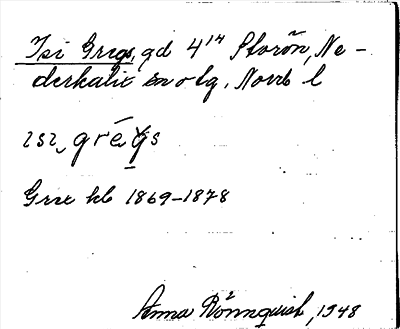 Isi Gregs, gd 4¹⁴ Storön, Ne-
derkalix sn o tg. Norrb l
isi, gré̄gs
Grse kb 1869-1878
Anna Rönnquist, 1948